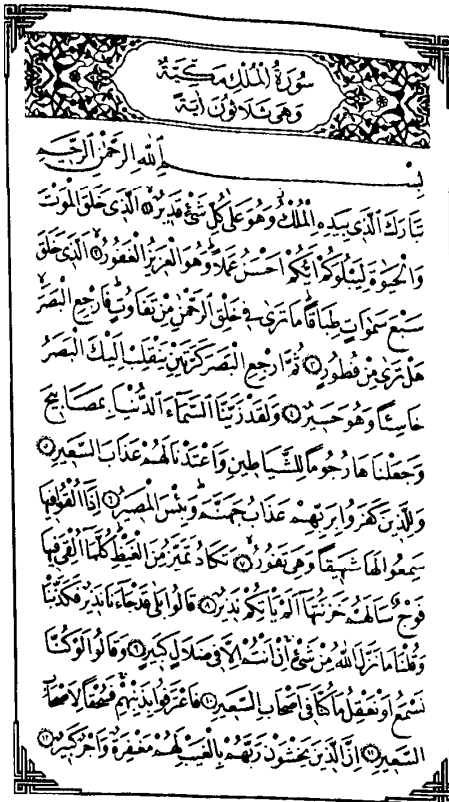 سُورَةُ الْمُلْكِ مَكِّيَّةٌ
وَهِىَ ثَلَاثُونَ اٰيَةً
بِسْمِ اللّٰهِ الرَّحْمٰنِ الرَّحِيمِ
تَبَارَكَ الَّذٖى بِيَدِهِ الْمُلْكُ وَهُوَ عَلٰى كُلِّ شَىْءٍ قَدٖيرٌ ١ اَلَّذٖى خَلَقَ الْمَوْتَ
وَالْحَيٰوةَ لِيَبْلُوَكُمْ اَيُّكُمْ اَحْسَنُ عَمَلًا وَهُوَ الْعَزٖيزُ الْغَفُورُ ٢ اَلَّذٖى خَلَقَ
سَبْعَ سَمٰوَاتٍ طِبَاقًا مَا تَرٰى فٖى خَلْقِ الرَّحْمٰنِ مِنْ تَفَاوُتٍ فَارْجِعِ الْبَصَرَ
هَلْ تَرٰى مِنْ فُطُورٍ ٣ ثُمَّ ارْجِعِ الْبَصَرَ كَرَّتَيْنِ يَنْقَلِبْ اِلَيْكَ الْبَصَرُ
خَاسِئًا وَهُوَ حَسٖيرٌ ٤ وَلَقَدْ زَيَّنَّا السَّمَاءَ الدُّنْيَا بِمَصَابٖيحَ
وَجَعَلْنَاهَا رُجُومًا لِلشَّيَاطٖينِ وَاَعْتَدْنَا لَهُمْ عَذَابَ السَّعٖيرِ ٥
وَلِلَّذٖينَ كَفَرُوا بِرَبِّهِمْ عَذَابُ جَهَنَّمَ وَبِئْسَ الْمَصٖيرُ ٦ اِذَا اُلْقُوا فٖيهَا
سَمِعُوا لَهَا شَهٖيقًا وَهِىَ تَفُورُ ٧ تَكَادُ تَمَيَّزُ مِنَ الْغَيْظِ كُلَّمَا اُلْقِىَ فٖيهَا
فَوْجٌ سَاَلَهُمْ خَزَنَتُهَا اَلَمْ يَاْتِكُمْ نَذٖيرٌ ٨ قَالُوا بَلٰى قَدْ جَاءَنَا نَذٖيرٌ فَكَذَّبْنَا
وَقُلْنَا مَا نَزَّلَ اللّٰهُ مِنْ شَىْءٍ اِنْ اَنْتُمْ اِلَّا فٖى ضَلَالٍ كَبٖيرٍ ٩ وَقَالُوا لَوْ كُنَّا
نَسْمَعُ اَوْ نَعْقِلُ مَا كُنَّا فٖى اَصْحَابِ السَّعٖيرِ ١٠ فَاعْتَرَفُوا بِذَنْبِهِمْ فَسُحْقًا لِاَصْحَابِ
السَّعٖيرِ ١١ اِنَّ الَّذٖينَ يَخْشَوْنَ رَبَّهُمْ بِالْغَيْبِ لَهُمْ مَغْفِرَةٌ وَاَجْرٌ كَبٖيرٌ ١٢